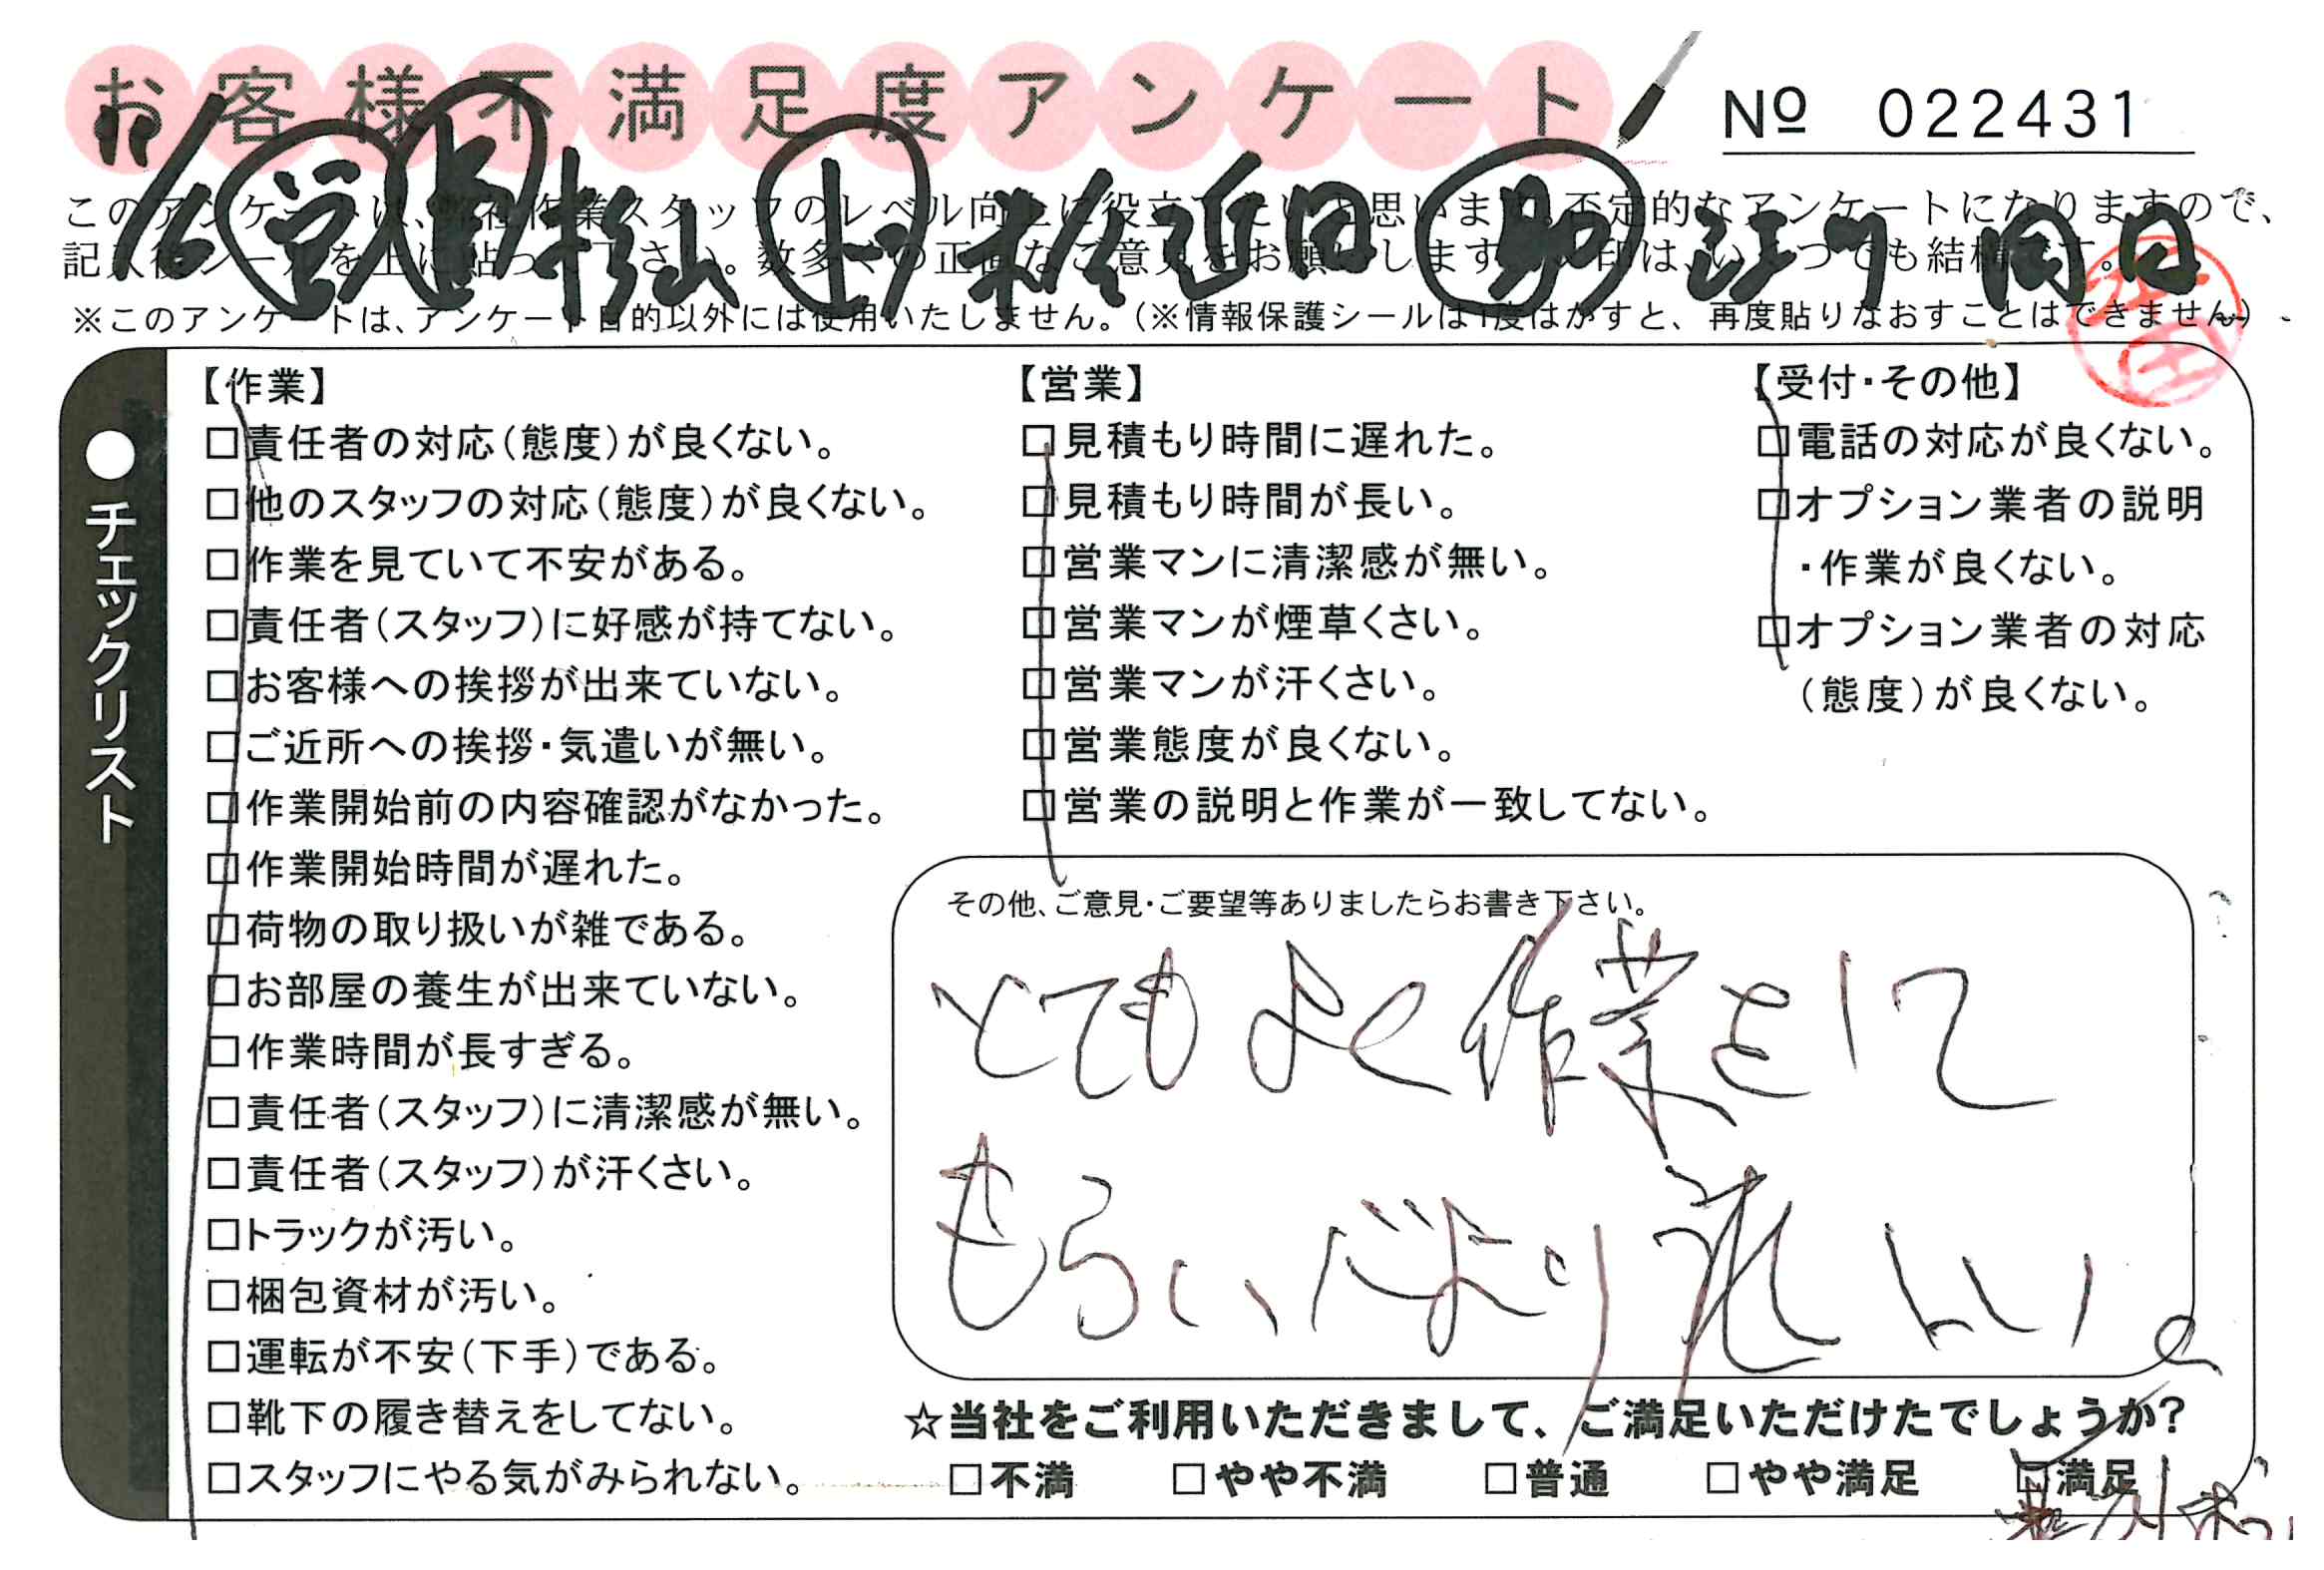 お客様不満足度アンケート
№ 022431
1/6 営 杉山 上 松延田 助 江川 内田
このアンケートは、弊社作業スタッフのレベル向上に役立てたいと思います。不定的なアンケートになりますので、
記入後シールを上に貼って下さい。数多くの正直なご意見をお願いします。レ印は、いくつでも結構です。
※このアンケートは、アンケート目的以外には使用いたしません。(※情報保護シールは1度はがすと、再度貼りなおすことはできません)
●チェックリスト
【作業】
□責任者の対応(態度)が良くない。
□他のスタッフの対応(態度)が良くない。
□作業を見ていて不安がある。
□責任者(スタッフ)に好感が持てない。
□お客様への挨拶が出来ていない。
□ご近所への挨拶・気遣いが無い。
□作業開始前の内容確認がなかった。
□作業開始時間が遅れた。
□荷物の取り扱いが雑である。
□お部屋の養生が出来ていない。
□作業時間が長すぎる。
□責任者(スタッフ)に清潔感が無い。
□責任者(スタッフ)が汗くさい。
□トラックが汚い。
□梱包資材が汚い。
□運転が不安(下手)である。
□靴下の履き替えをしてない。
□スタッフにやる気がみられない。
【営業】
□見積もり時間に遅れた。
□見積もり時間が長い。
□営業マンに清潔感が無い。
□営業マンが煙草くさい。
□営業マンが汗くさい。
□営業態度が良くない。
□営業の説明と作業が一致してない。
【受付・その他】
□電話の対応が良くない。
□オプション業者の説明
・作業が良くない。
□オプション業者の対応
(態度)が良くない。
その他、ご意見・ご要望等ありましたらお書き下さい。
とてもよく作業をして
もらい、なによりうれしい。
☆当社をご利用いただきまして、ご満足いただけたでしょうか?
□不満 □やや不満 □普通 □やや満足 ☑満足